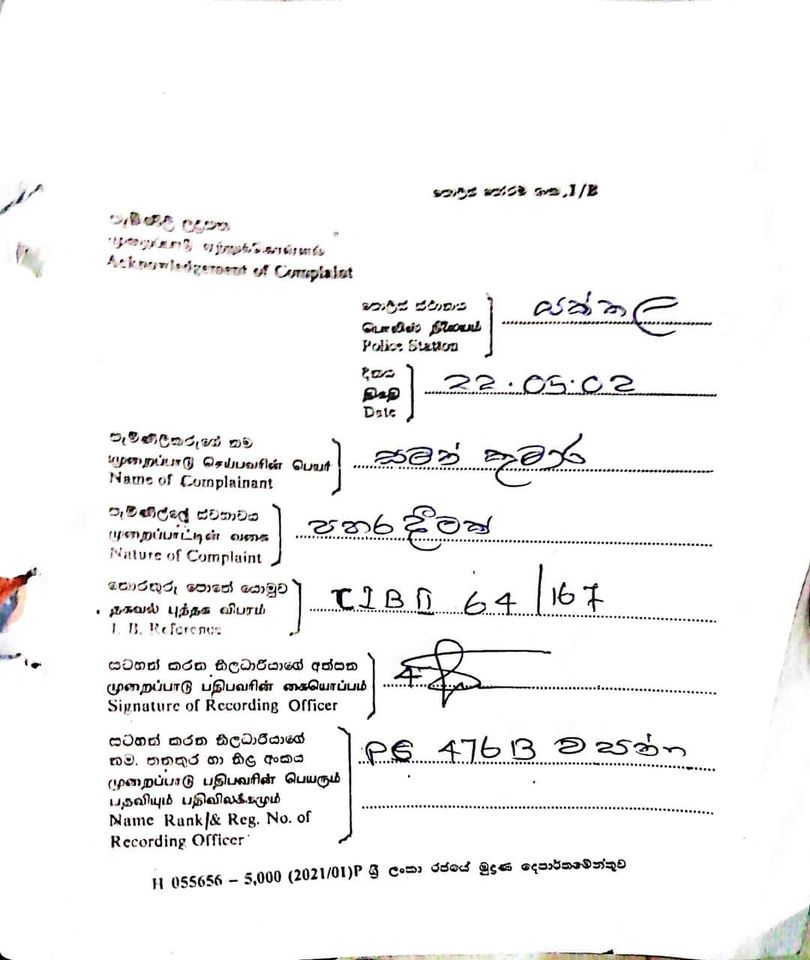 පොලිස් පෝරම අංක.1/B
පැමිණිලි ලදුපත
முறைப்பாடு ஏற்றுக்கொள்ளல்
Acknowledgement of Complaint
පොලිස් ස්ථානය
பொலிஸ் நிலையம்
Police Station
දිනය
திகதி
Date
22.05.02
පැමිණිලිකරුගේ නම
முறைப்பாடு செய்பவரின் பெயர்
Name of Complainant
සමන් කුමාර
පැමිණිල්ලේ ස්වභාවය
முறைப்பாட்டின் வகை
Nature of Complaint
පහරදීමක්
තොරතුරු පොතේ යොමුව
தகவல் புத்தக விபரம்
I. B. Reference
CIB II 64/167
සටහන් කරන නිලධාරියාගේ අත්සන
முறைப்பாடு பதிபவரின் கையொப்பம்
Signature of Recording Officer
සටහන් කරන නිලධාරියාගේ
නම, තනතුර හා නිල අංකය
முறைப்பாடு பதிபவரின் பெயரும்
பதவியும் பதிவிலக்கமும்
Name Rank/& Reg. No. of
Recording Officer
H 055656 – 5,000 (2021/01)P ශ්‍රී ලංකා රජයේ මුද්‍රණ දෙපාර්තමේන්තුව